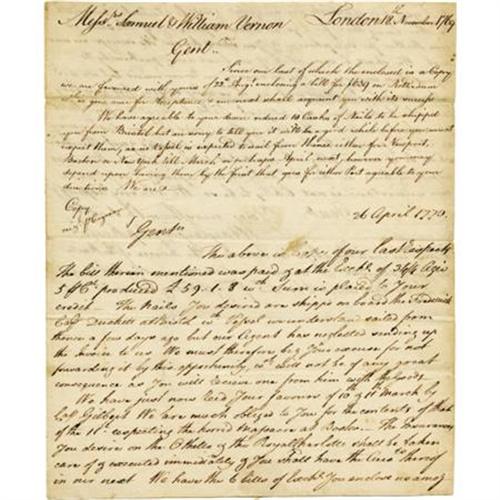 Messrs. Samuel & William Vernon London 18th November 1769
Gentn
Since our last of which the enclosed is a Copy
we are favoured with yours of 22d Augt enclosing a bill for on Rotterdam
is gone out for acceptance & our next shall acquaint you with its success
We have agreeable to your desire ordered 10 Casks of Nails to be shipped
you from Bristol but am sorry to tell you it will be a good while before you must
expect them, as no Vessel is expected to sail from thence either for Newport,
Boston or New York till March or perhaps April next, however you may
depend upon having them by the first that goes for either Port agreeable to your
directions. We are
Copy
26 April 1770.
Gentn
The above is Copy of our last Respects
The bill therein mentioned was paid & at the Exche. of
produced £ 59. 1. 8 wch. Sum is placed to Your
credit. The Nails You desired are shipp'd on board the Frederick
Capt Duckett at Bristol wch. Vessel we understand sailed from
thence a few days ago but our Agent has neglected sending up
the Invoice to us. We must therefore beg Your excuse for not
forwarding it by this opportunity, wch. will not be of any great
consequence as You will receive one from him with the goods.
We have just now Recd Your favours of 10th & 11th March by
Col Gilbert. We are much obliged to You for the contents of that
of the 11th. respecting the horrid Massacre at Boston. The Insurances
You desire on the Othello & the Royal Charlotte shall be taken
care of & executed immediately & You shall have the thereof
in our next. We have the 6 Bills of Exche. You enclose us amog